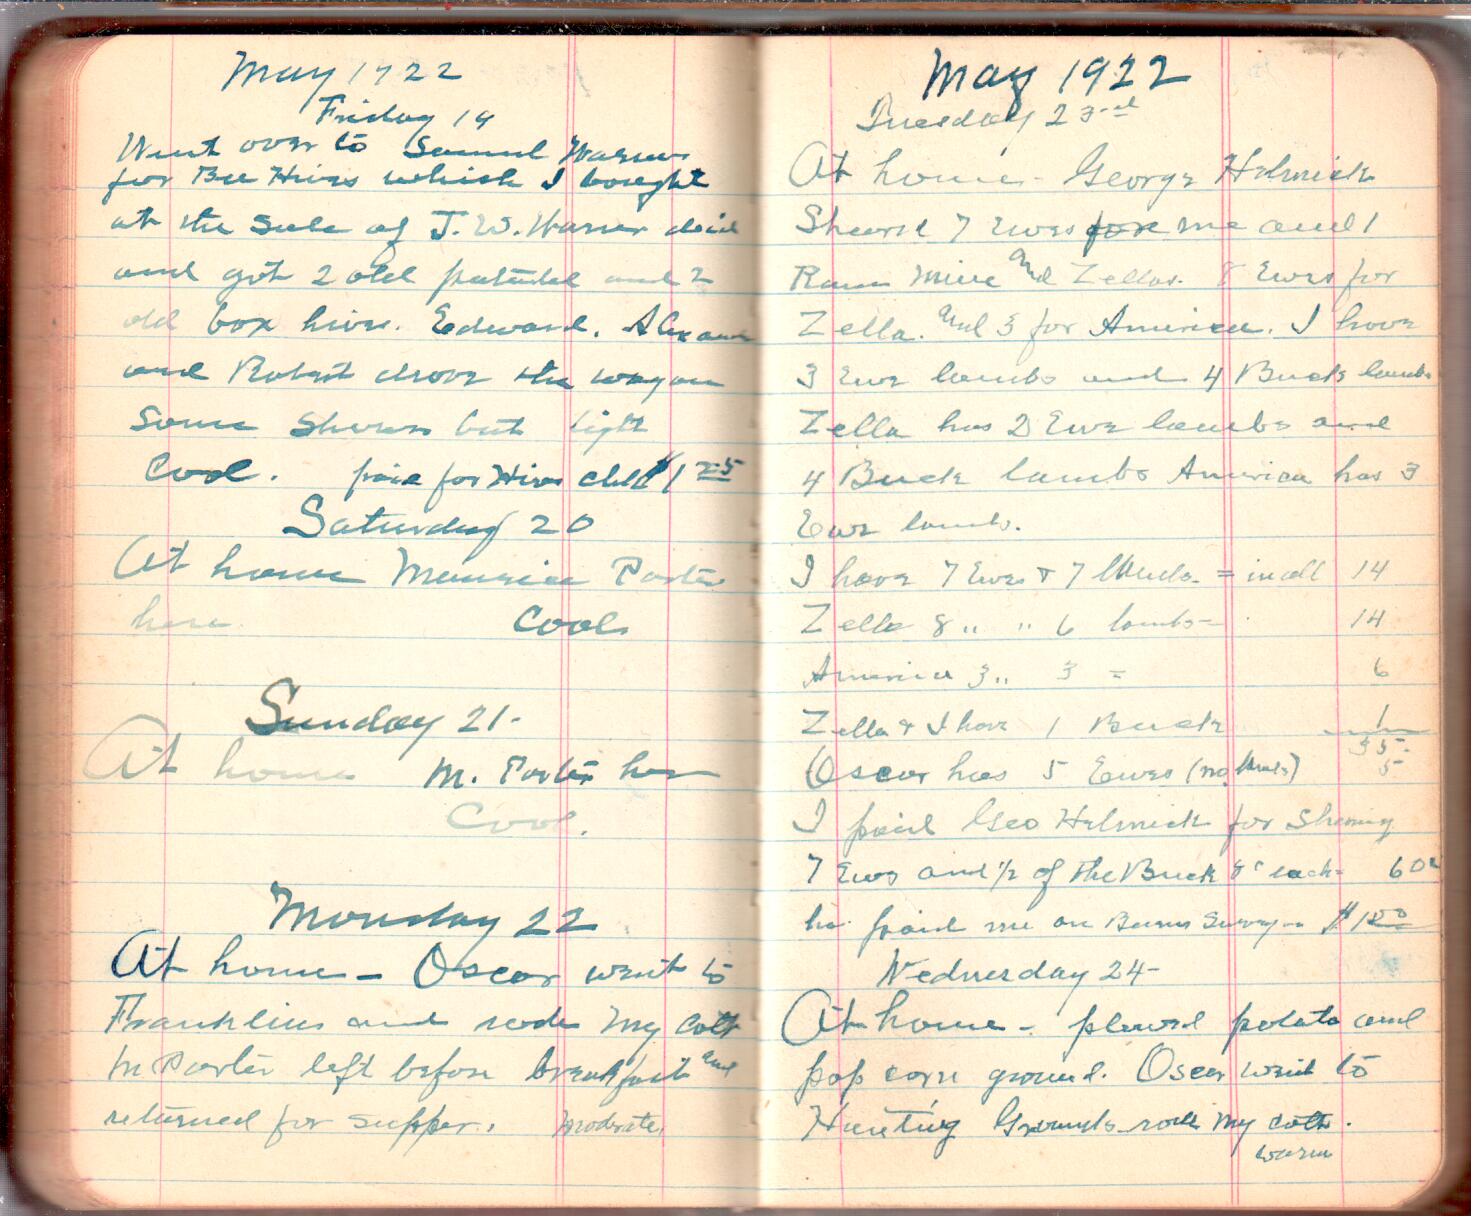 May 1922
Friday 19
Went over to Samuel Warners
for Bee Hives which I bought
at the Sale of J. W. Warner decid
and got 2 old patented and 2
old box hives. Edward, Alex and
and Robert drove the wagon
Some Showers but light
Cool. paid for Hives $1 25
Saturday 20
At home Maurice Porter
here Cool
Sunday 21-
At home M. Porter her
Cool.
Monday 22
At home - Oscar went to
Franklins and rode My Colt
M Porter left before breakfast and
returned for supper. moderate
May 1922
Tuesday 23rd
At home - George Helmick
Sheard 7 Ewes for me and 1
Ram Mine and Zellas. 8 Ewes for
Zella. And 3 for America. I have
3 Ewe lambs and 4 Buck lambs
Zella has 2 Ewe lambs and
4 Buck lambs America has 3
Ewe lambs.
I have 7 Ewes & 7 lambs = in all 14
Zella 8 " " 6 lambs = 14
America 3 " 3 = 6
Zella & I have 1 Buck 1
35
Oscar has 5 Ewes (no lambs) 5
I paid Geo Helmick for Shearing
7 Ews and 1/2 of the Buck 8c each - 60c
he paid me on Survey - $1 50
Wednesday 24-
At home - plowed potato and
pop corn ground. Oscar went to
Hunting Grounds rode My colt.
warm